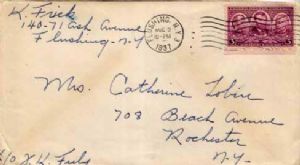 K. Frick
140-71 Ash Avenue
Flushing - N.Y.
FLUSHING, N.Y.
AUG 2
PM
1937
Mrs. Catherine Tobin
708 Beach Avenue
Rochester
N.Y.
c/o K.